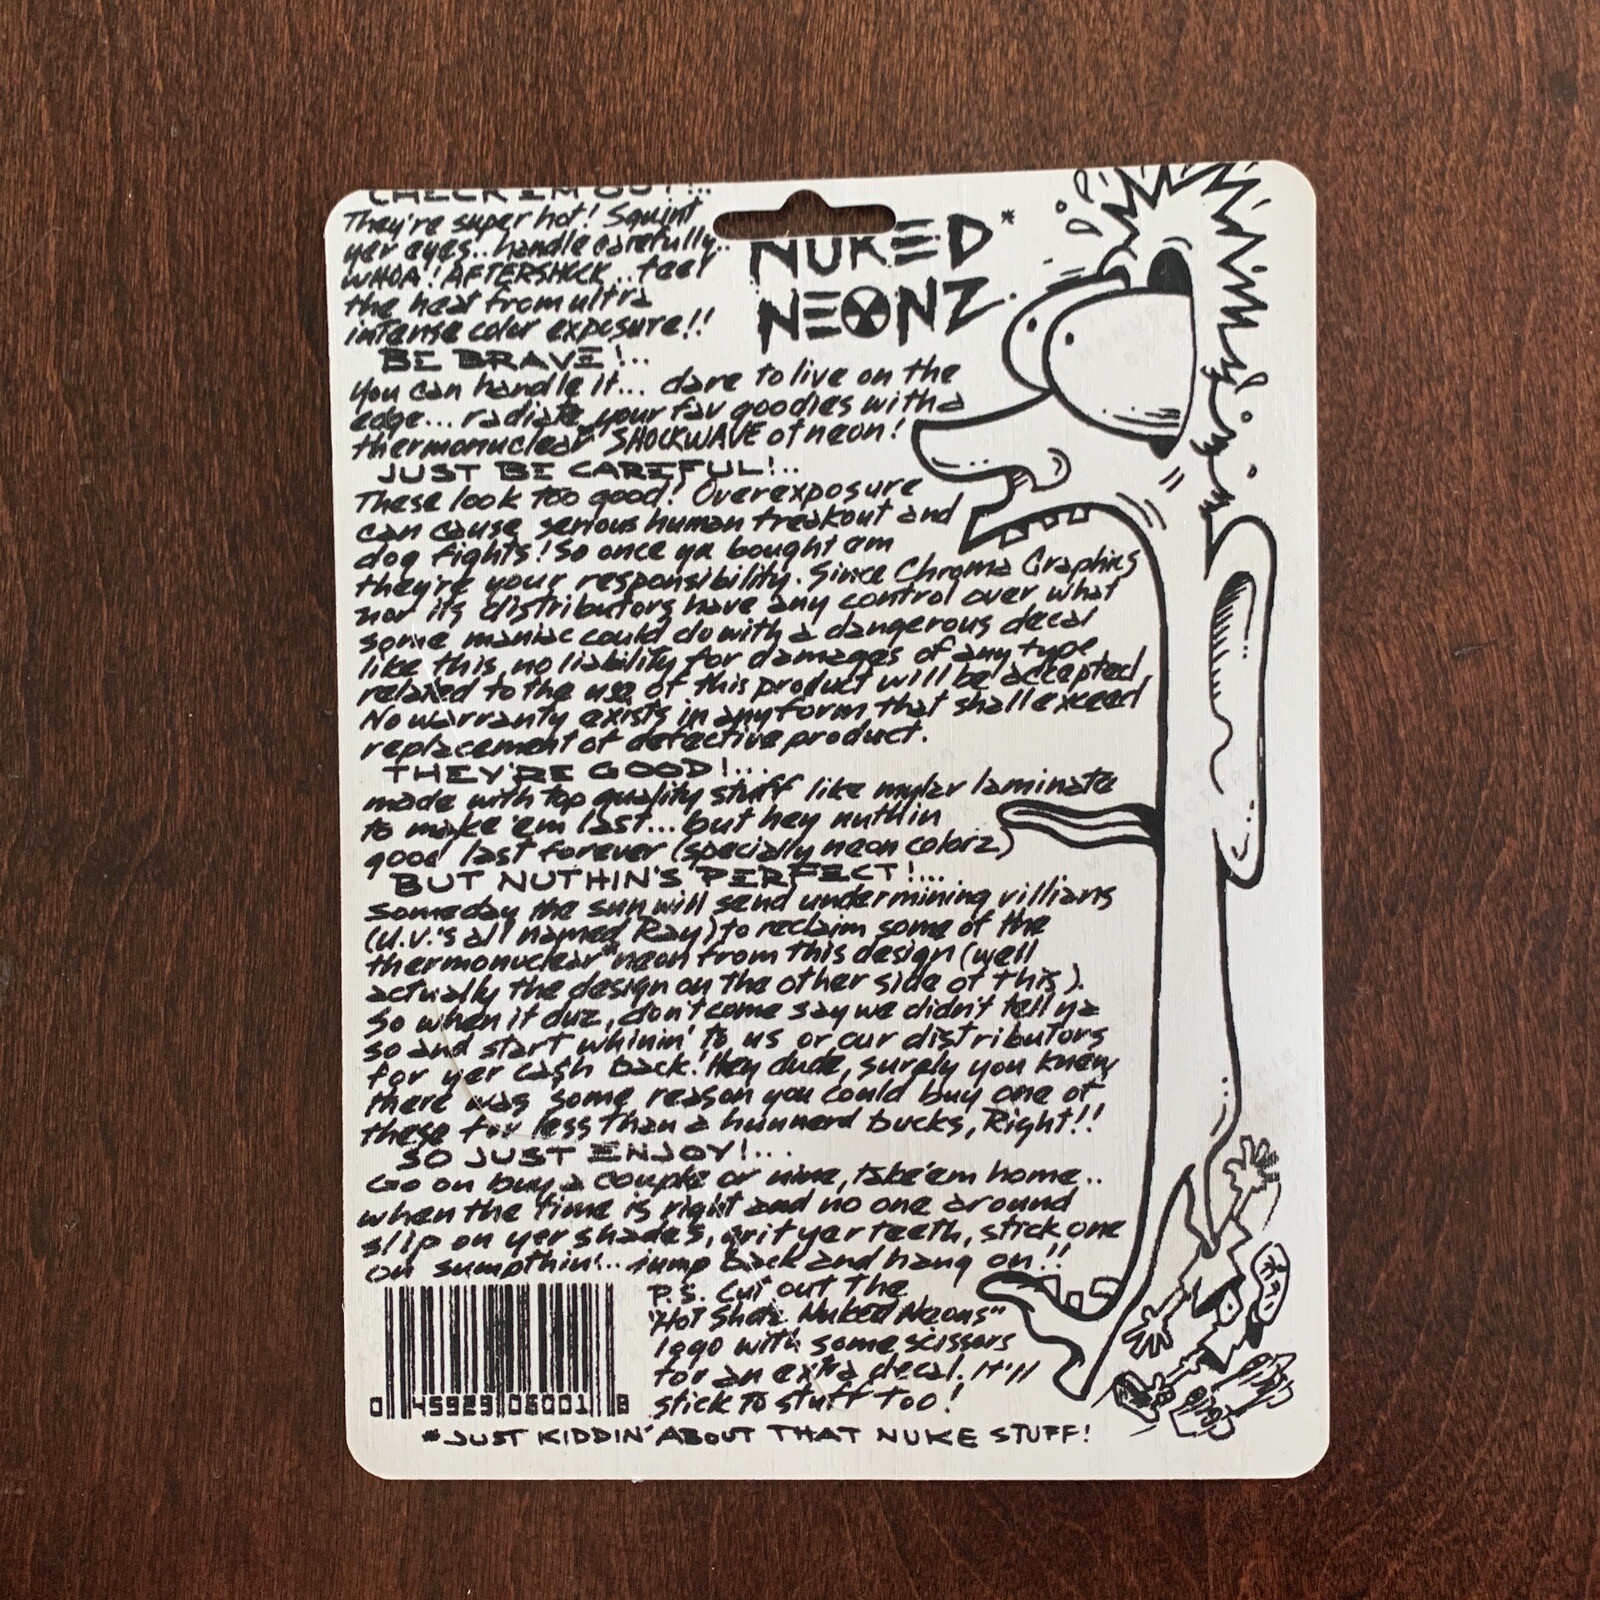 CHECK 'EM OUT!...
They're super hot! Squint
yer eyes.. handle carefully..
WHOA! AFTERSHOCK...feel
the heat from ultra
intense color exposure!!
NUKED*
NEONZ
BE BRAVE!..
You can handle it... dare to live on the
edge... radiate your fav goodies with a
thermonuclear* SHOCKWAVE of neon!
JUST BE CAREFUL!..
These look too good! Overexposure
can cause serious human freakout and
dog fights! So once ya bought em
they're your responsibility. Since Chroma Graphics
nor its distributors have any control over what
some maniac could do with a dangerous decal
like this, no liability for damages of any type
related to the use of this product will be accepted.
No warranty exists in any form that shall exceed
replacement of defective product.
THEY'RE GOOD!...
made with top quality stuff like mylar laminate
to make 'em last... but hey nuthin
good last forever (specially neon colorz)
BUT NUTHIN'S PERFECT!...
Someday the sun will send undermining villians
(U.V.'s all named Ray) to reclaim some of the
thermonuclear* neon from this design (well
actually the design on the other side of this).
So when it duz, don't come say we didn't tell ya
so and start whinin' to us or our distributors
for yer cash back! Hey dude, surely you knew
there was some reason you could buy one of
these for less than a hunnerd bucks, Right!!
SO JUST ENJOY!...
Go on buy a couple or nine, take 'em home..
when the time is right and no one around
slip on yer shades, grit yer teeth, stick one
on sumpthin!.. jump back and hang on!!
P.S. Cut out the
"Hot Shotz Nuked Neons"
logo with some scissors
for an extra decal. It'll
stick to stuff too!
0 45929 06001 8
*JUST KIDDIN' ABOUT THAT NUKE STUFF!